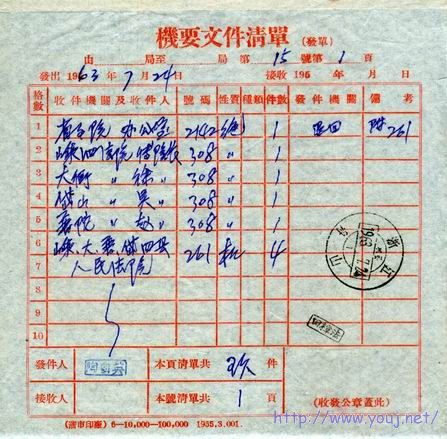 機要文件清單 (發單)
由 局至 局 第 15 號第 1 頁
發出 1963 年 7 月 24 日 接收 195 年 月 日
格數 收件機關及收件人 號碼 性質 種類 件數 發件機關 備考
1 省法院 办公室 2142 1 261
2 308 〃 1
3 大衢 〃 徐 308 〃 1
4 岱山 〃 吴 308 〃 1
5 普陀 〃 赵 308 〃 1
6 嵊、大、普、岱四县 261 4
7 人民法院
8
9
10
發件人 本頁清單共 玖 件
接收人 本號清單共 1 頁
(收發公章蓋此)
(滬市印廠) 6—10,000—100,000 1955.3.001.
http://www.youj.net/